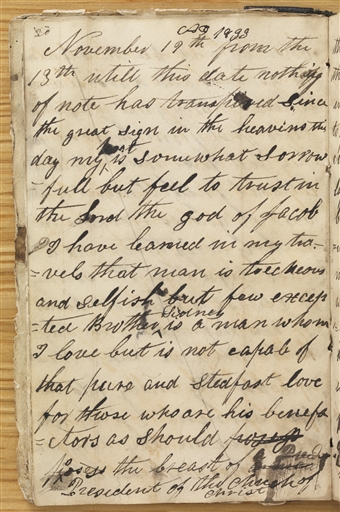 November 19th from the
13th untill this date nothing
of note has transpired since
the great sign in the heavins this
day my h[ear]t is somewhat sorrow
=full but feel to trust in
the Lord the god of Jacob
I have learned in my tra=
=vels that man is treche[r]ous
and selfish but few excep
=ted Brother Sidney is a man whom
I love but is not capab of
that pure and stedfast love
for those who are his benefa
=ctors as should
the breast of a
President of the Church of
Christ